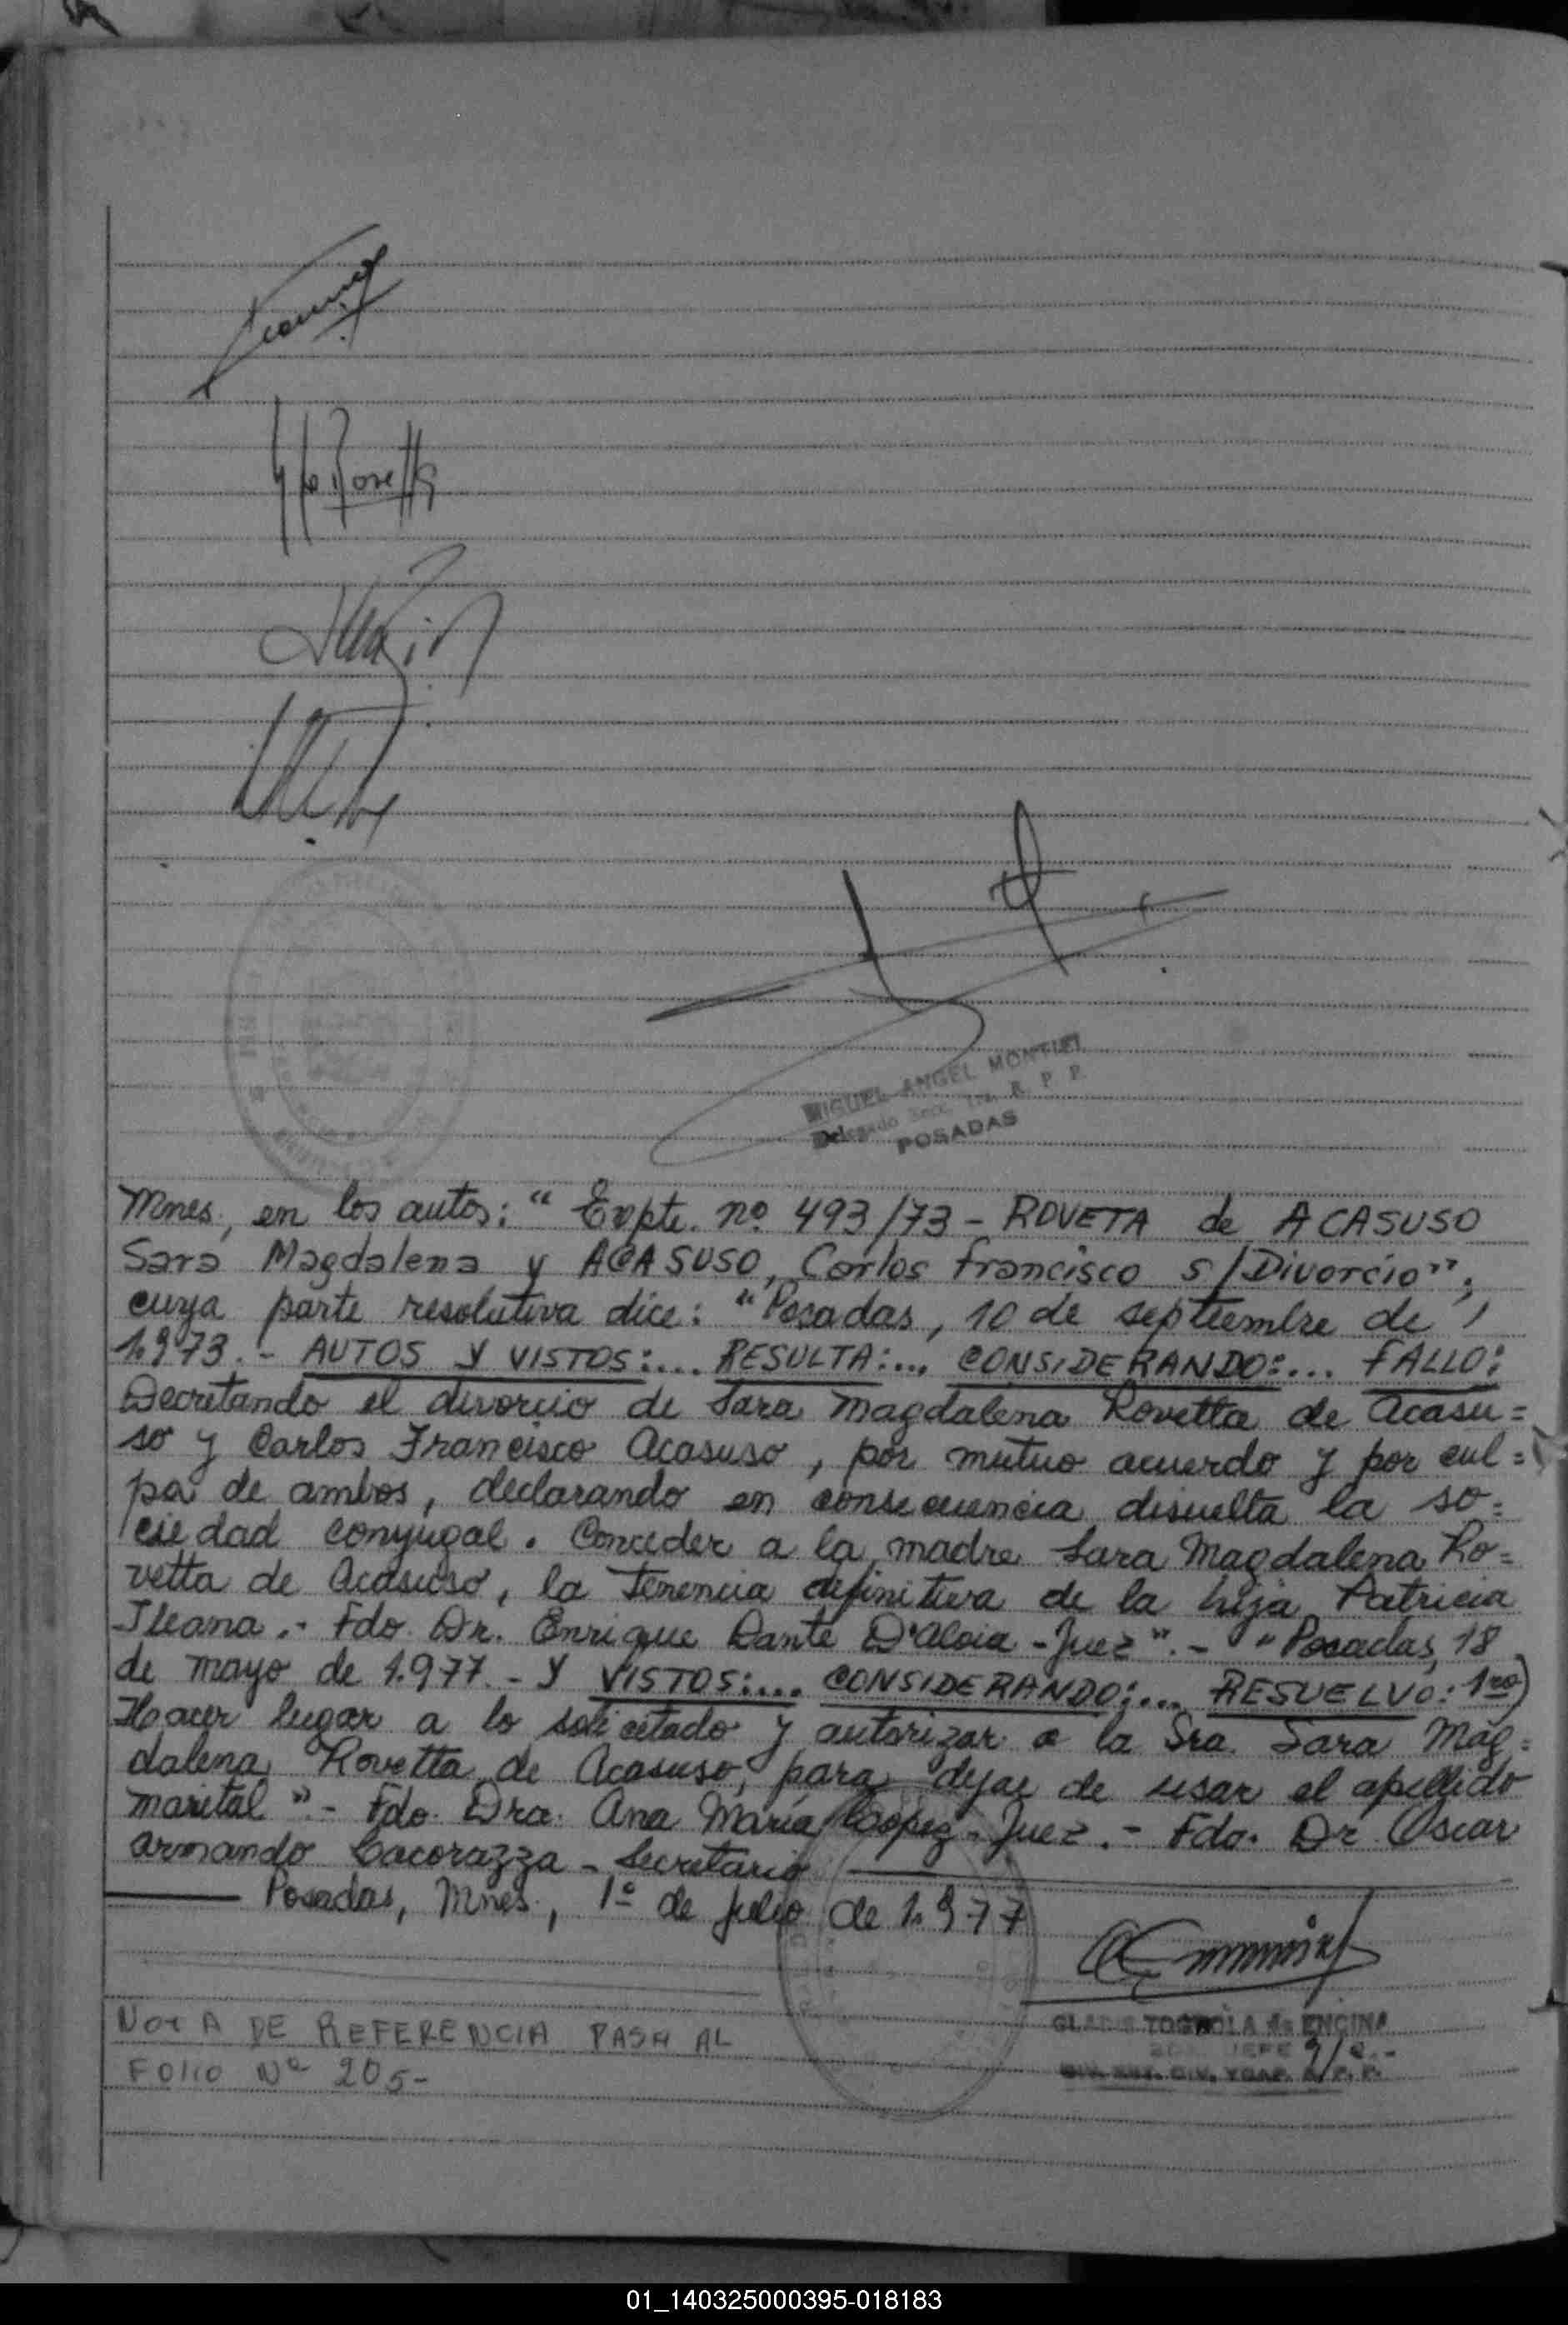 MIGUEL ANGEL MONTIEL
Delegado Secc. 1ra. R. P. P.
POSADAS
Mnes, en los autos: "Expte. nº 493/73 - ROVETA de ACASUSO
Sara Magdalena y ACASUSO, Carlos Francisco s/Divorcio",
cuya parte resolutiva dice: "Posadas, 10 de septiembre de
1.973.- AUTOS Y VISTOS:... RESULTA:... CONSIDERANDO:... FALLO:
Decretando el divorcio de Sara Magdalena Rovetta de Acasu=
so y Carlos Francisco Acasuso, por mutuo acuerdo y por cul=
pa de ambos, declarando en consecuencia disuelta la so=
ciedad conyugal. Conceder a la madre Sara Magdalena Ro=
vetta de Acasuso, la tenencia definitiva de la hija Patricia
Ileana.- Fdo. Dr. Enrique Dante D'Aloia - Juez".- "Posadas, 18
de mayo de 1.977.- Y VISTOS:... CONSIDERANDO:... RESUELVO: 1ro)
Hacer lugar a lo solicitado y autorizar a la Sra. Sara Mag=
dalena Rovetta de Acasuso, para dejar de usar el apellido
marital".- Fdo. Dra. Ana María Lopez - Juez.- Fdo. Dr. Oscar
Armando Cacorazza - Secretario
Posadas, Mnes., 1º de Julio de 1.977
de ENCINA
NOTA DE REFERENCIA PASA AL
FOLIO Nº 205-
01_140325000395-018183